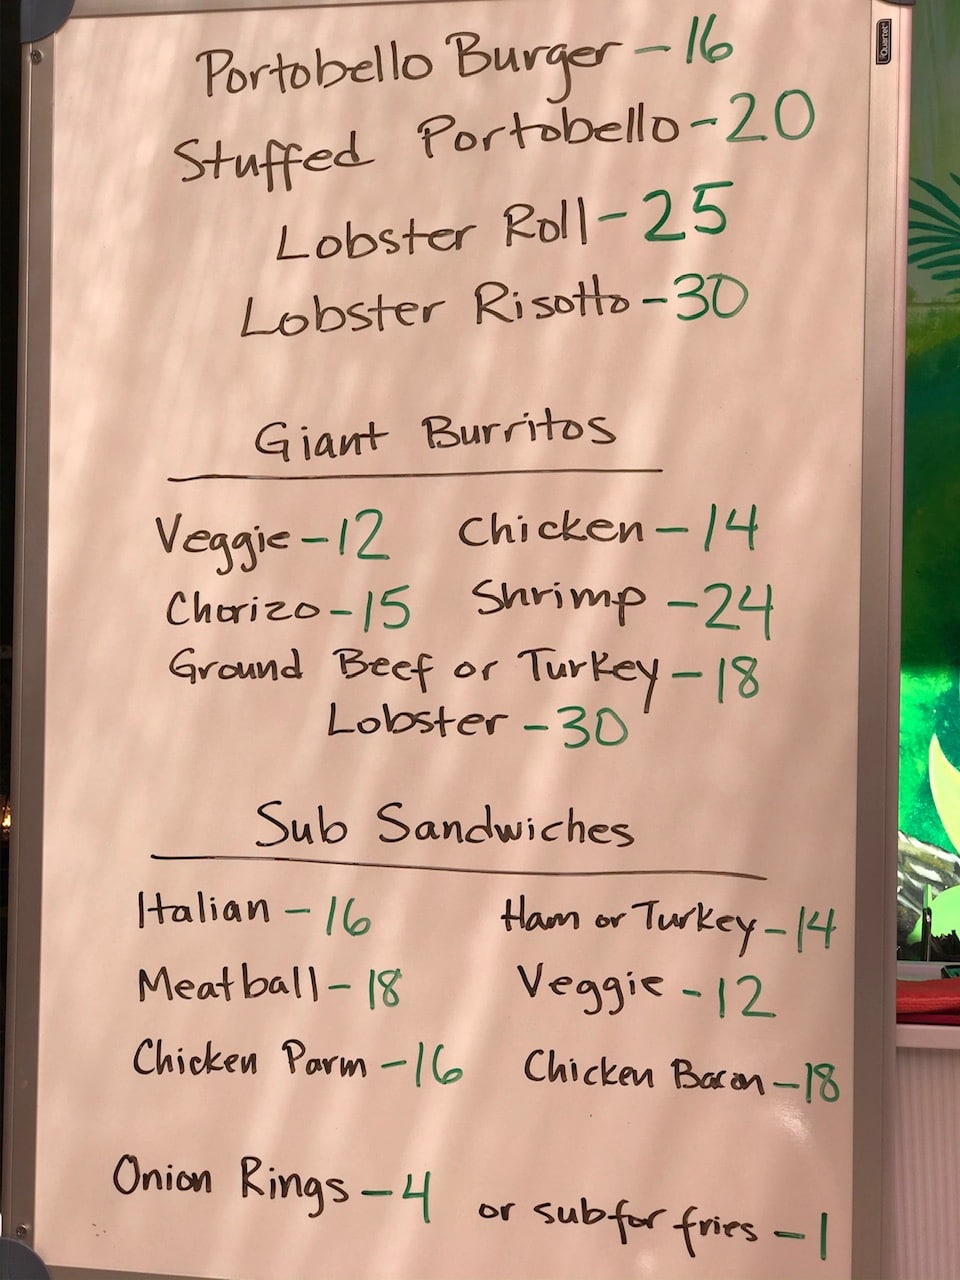 Quartet
Portobello Burger - 16
Stuffed Portobello - 20
Lobster Roll - 25
Lobster Risotto - 30
Giant Burritos
Veggie - 12 Chicken - 14
Chorizo - 15 Shrimp - 24
Ground Beef or Turkey - 18
Lobster - 30
Sub Sandwiches
Italian - 16 Ham or Turkey - 14
Meatball - 18 Veggie - 12
Chicken Parm - 16 Chicken Bacon - 18
Onion Rings - 4 or sub for fries - 1